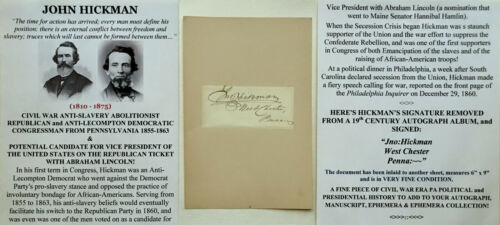 JOHN HICKMAN
"The time for action has arrived; every man must define his
position: there is an eternal conflict between freedom and
slavery; truces which will last cannot be formed between them…"
(1810 - 1875)
CIVIL WAR ANTI-SLAVERY ABOLITIONIST
REPUBLICAN and ANTI-LECOMPTON DEMOCRATIC
CONGRESSMAN FROM PENNSYLVANIA 1855-1863
&
POTENTIAL CANDIDATE FOR VICE PRESIDENT OF
THE UNITED STATES ON THE REPUBLICAN TICKET
WITH ABRAHAM LINCOLN!
In his first term in Congress, Hickman was an Anti-
Lecompton Democrat who went against the Democrat
Party's pro-slavery stance and opposed the practice of
involuntary bondage for African-Americans. Serving from
1855 to 1863, his anti-slavery beliefs would eventually
facilitate his switch to the Republican Party in 1860, and
was even was one of the men voted on as a candidate for
Jno: Hickman
West Chester
Penna:
Vice President with Abraham Lincoln (a nomination that
went to Maine Senator Hannibal Hamlin).
When the Secession Crisis began Hickman was s staunch
supporter of the Union and the war effort to suppress the
Confederate Rebellion, and was one of the first supporters
in Congress of both Emancipation of the slaves and of the
raising of African-American troops!
At a political dinner in Philadelphia, a week after South
Carolina declared secession from the Union, Hickman made
a fiery speech calling for war, reported on the front page of
the Philadelphia Inquirer on December 29, 1860.
<>::<>
HERE'S HICKMAN'S SIGNATURE REMOVED
FROM A 19th CENTURY AUTOGRAPH ALBUM, and
SIGNED:
"Jno:Hickman
West Chester
Penna:~~"
The document has been inlaid to another sheet, measures 6" x 9"
and is in VERY FINE CONDITION.
A FINE PIECE OF CIVIL WAR ERA PA POLITICAL and
PRESIDENTIAL HISTORY TO ADD TO YOUR AUTOGRAPH,
MANUSCRIPT, EPHEMERA & EPHEMERA COLLECTION!
<>::<>